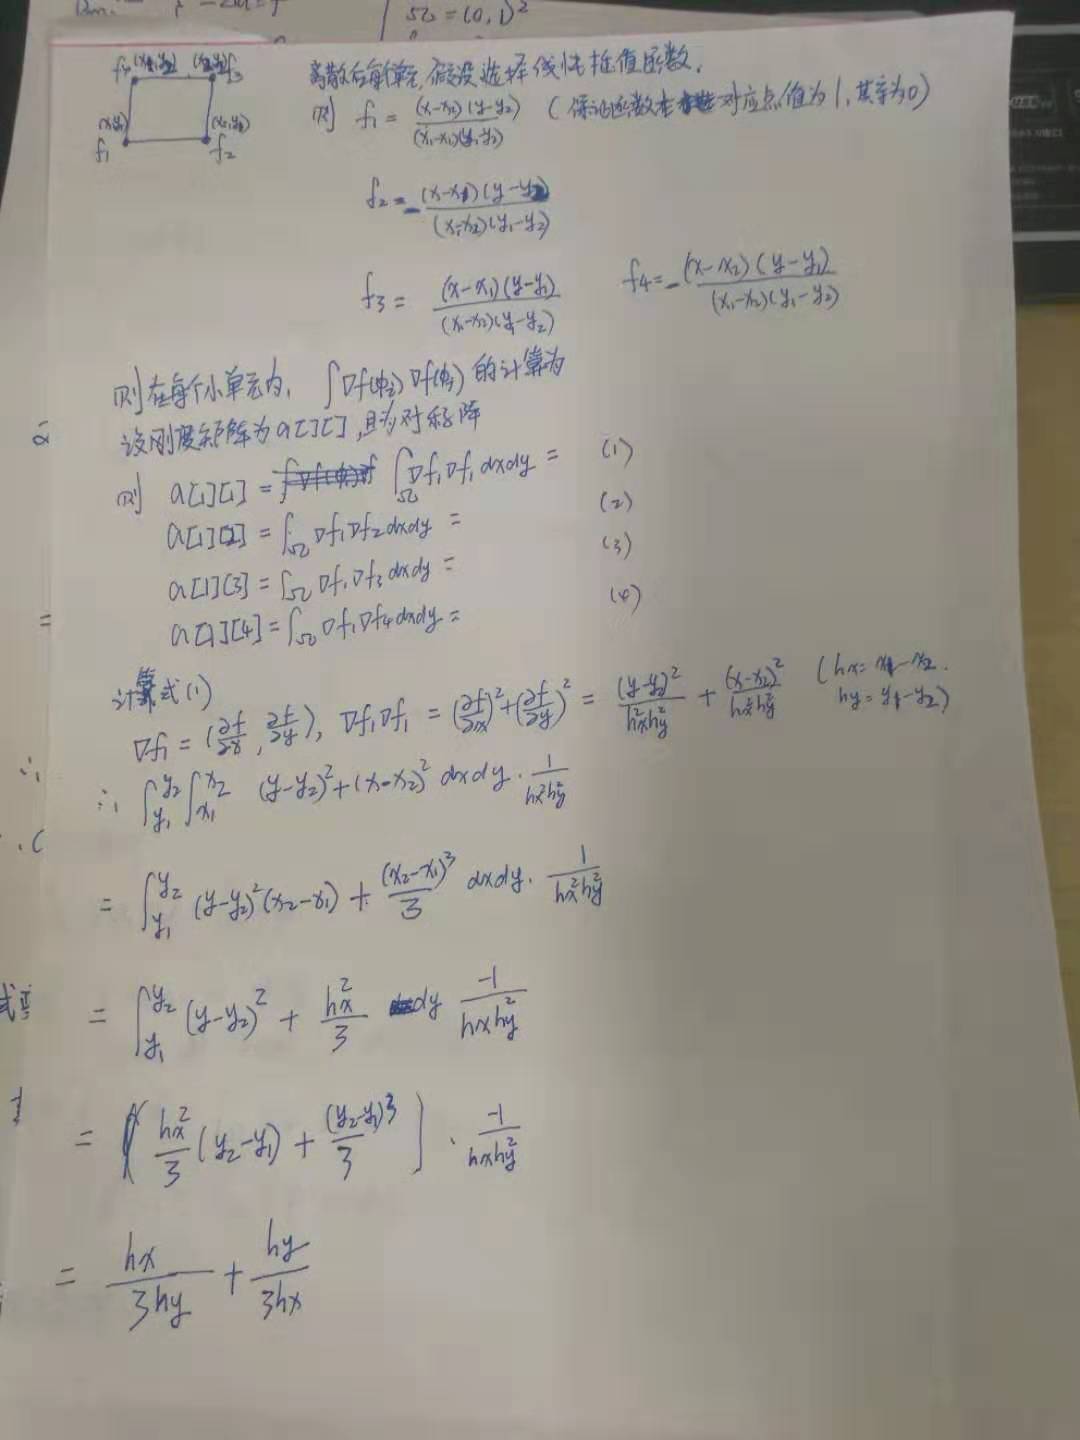 Ω = (0,1)²
f4 (x1,y2) (x2,y2) f3
(x1,y1) (x2,y1)
f1 f2
离散后每个单元,假设选择线性插值函数,
则 f1 = (x-x2)(y-y2) / (x1-x2)(y1-y2) (保证函数在对应点值为1,其余为0)
f2 = - (x-x1)(y-y2) / (x1-x2)(y1-y2)
f3 = (x-x1)(y-y1) / (x1-x2)(y1-y2)
f4 = - (x-x2)(y-y1) / (x1-x2)(y1-y2)
则在每个小单元内, ∫∇f(φi)∇f(φj) 的计算为
设刚度矩阵为a[][],且为对称阵
则 a[1][1] = ∫Ω ∇f1∇f1 dxdy = (1)
a[1][2] = ∫Ω ∇f1∇f2 dxdy = (2)
a[1][3] = ∫Ω ∇f1∇f3 dxdy = (3)
a[1][4] = ∫Ω ∇f1∇f4 dxdy = (4)
计算式(1)
∇f1 = (∂f/∂x, ∂f/∂y), ∇f1∇f1 = (∂f/∂x)² + (∂f/∂y)² = (y-y2)²/hx²hy² + (x-x2)²/hx²hy² (hx = x1-x2. hy = y1-y2)
∴ ∫y1^y2 ∫x1^x2 (y-y2)²+(x-x2)² dxdy · 1/hx²hy²
= ∫y1^y2 (y-y2)²(x2-x1) + (x2-x1)³/3 dxdy · 1/hx²hy²
= ∫y1^y2 (y-y2)² + hx²/3 dy -1/hxhy²
= [hx²/3 (y2-y1) + (y2-y1)³/3] · -1/hxhy²
= hx/3hy + hy/3hx